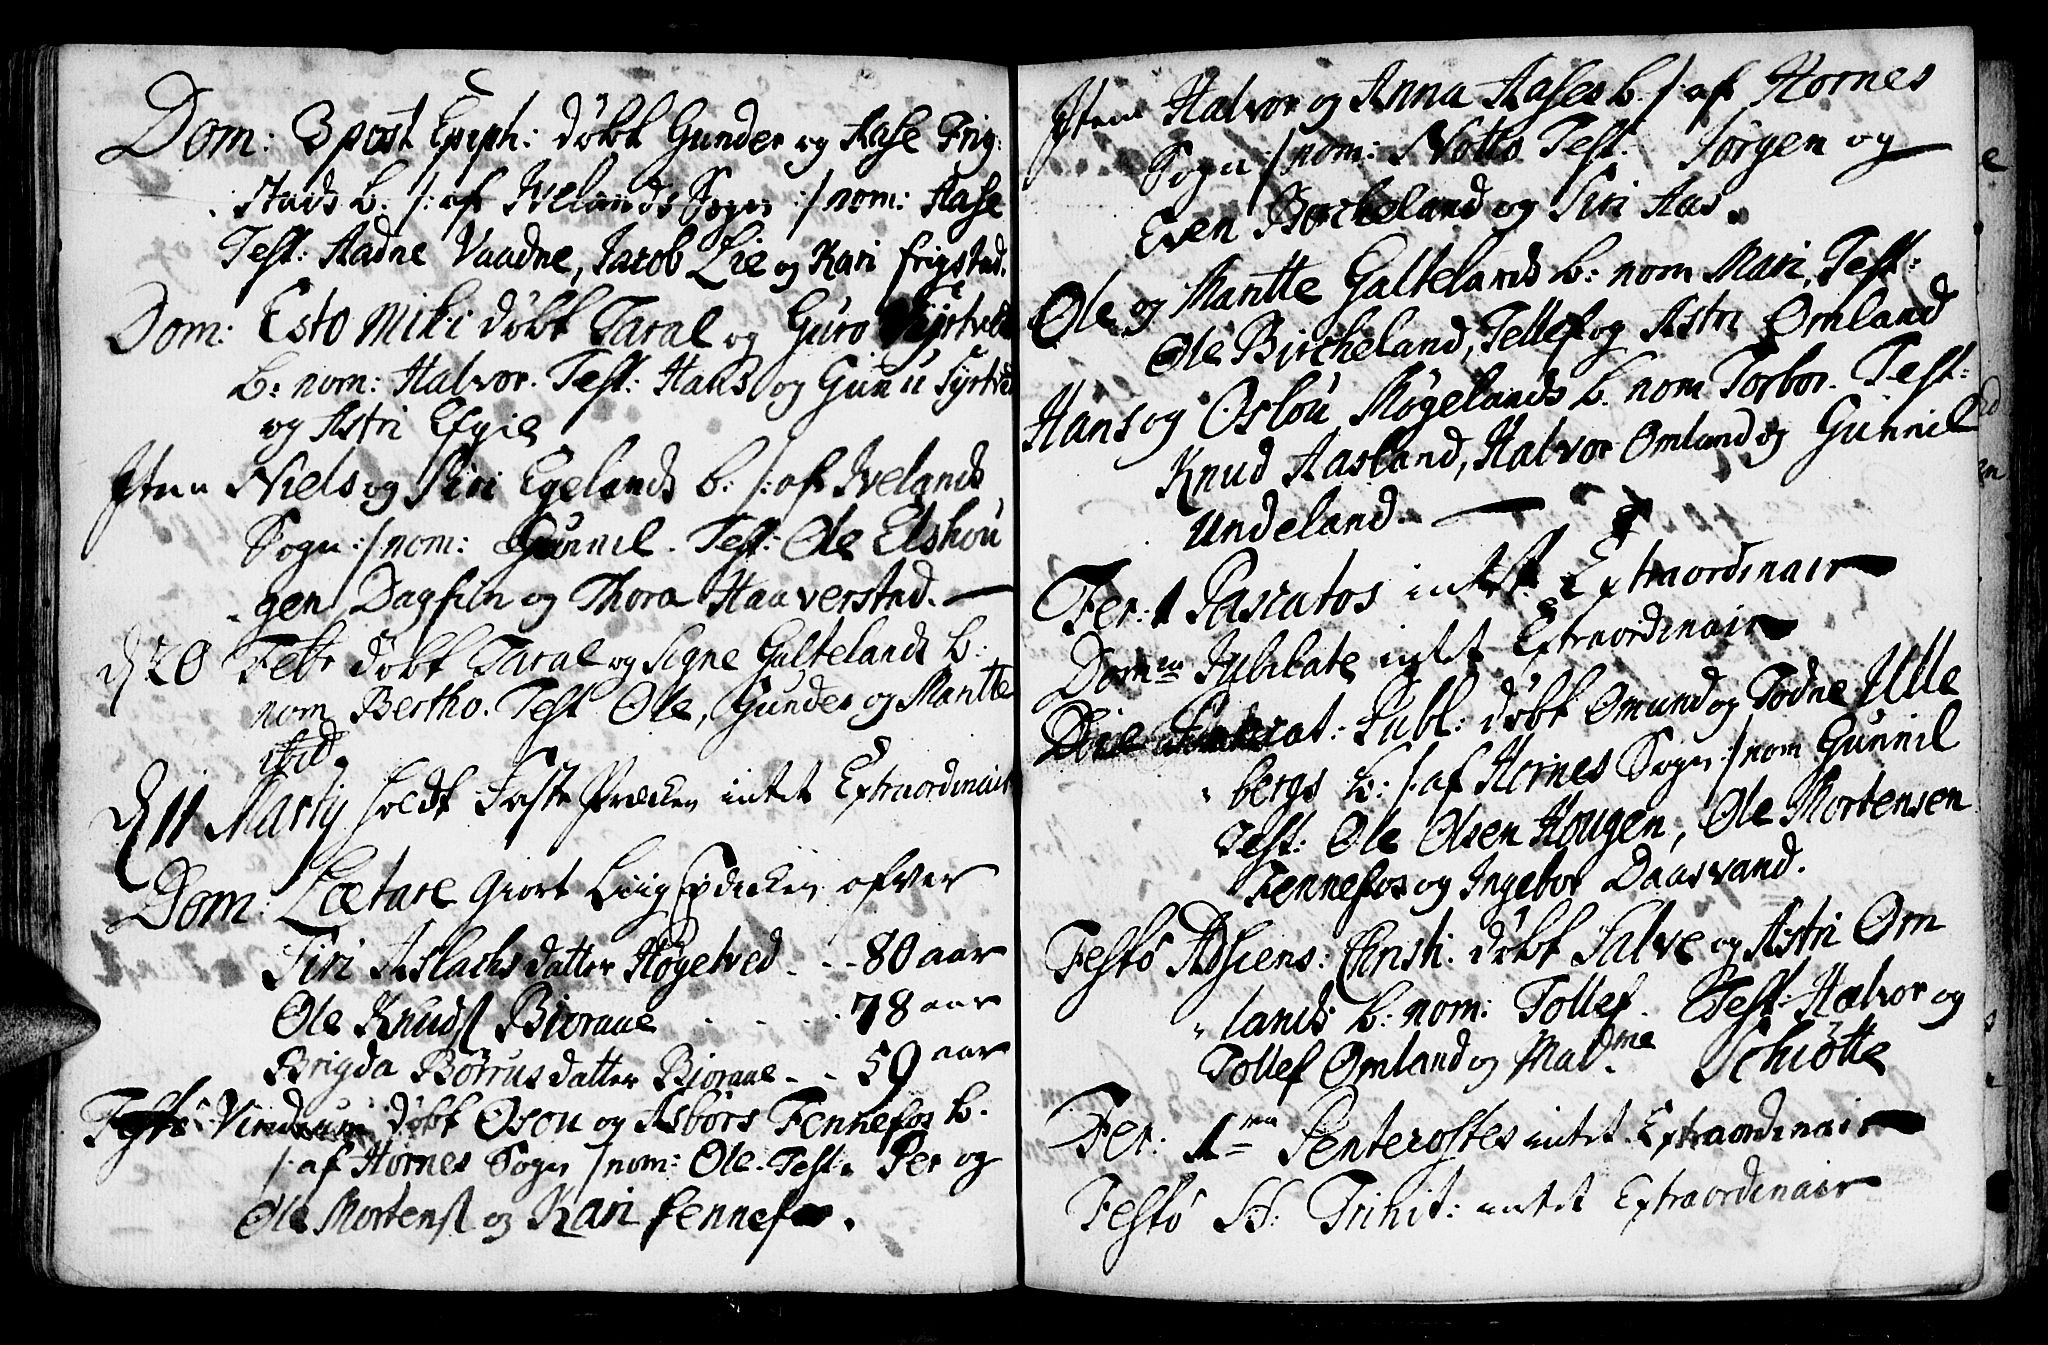 Dom: 3 post Epiph: døbt Gunder og Aase Frig:
stads b. /: af Ivelands Sogn :/ nom: Aase
Test: Aadne Vaadne, Jacob Lie og Kari Frigstad.
Dom: Esto Miki døbt Taral og Guro Tyrtvedt
b: nom: Halvor. Test: Hans og Gunu Tyrtved
og Astri Efgie
Item Niels og Siri Egelands b: /: af Ivelands
Sogn :/ nom: Gunnil. Test: Ole Elshou
gen, Dagfin og Thora Haaverstad.
d 20 Febr døbt Taral og Signe Galtelands b:
nom Bertho. Test Ole, Gunder og Mantte
ibid.
d 11 Martij holdt Faste Præcken intet Extraordinair
Dom: Lætare giort Liig Prædicken ofver
Siri Aslachsdatter Høgetved . . . 80 aar
Ole Knuds Bioraae . . . . . 78 aar
Brigda Børrusdatter Bioraae . . 59 aar
Festo Viridium døbt Osou og Asbørs Fennefos b.
/: af Hornes Sogn :/ nom: Ole. Test: Per og
Ole Mortens og Kari Fennefos.
Item Halvor og Anna Aases b. /: af Hornes
Sogn :/ nom: Notto. Test: Jørgen og
Even Birkeland og Siri Aas.
Ole og Mantte Galtelands b: nom Mari, Test:
Ole Bircheland, Tellef og Astri Omland
Hans og Oslou Møgelands b. nom Torbor. Test:
Knud Aasland, Halvor Omland og Gunnil
Undeland.
Fer: 1 Pascatos intet Extraordinair
Domca Jubilate intet Extraordinair
Die Precat: Publ: døbt Omund og Todne Ulle
bergs b: /: af Hornes Sogn :/ nom Gunnil
Test: Ole Olsen Hougen, Ole Mortensen
Fennefos og Ingebor Daasvand.
Festo Adscens: Christi: døbt Salve og Astri Om
lands b: nom: Tollef. Test: Halvor og
Tollef Omland og Madme Schiøtte
Fer: 1ma Pentecostes intet Extraordinair
Festo SS: Trinit: intet Extraordinair